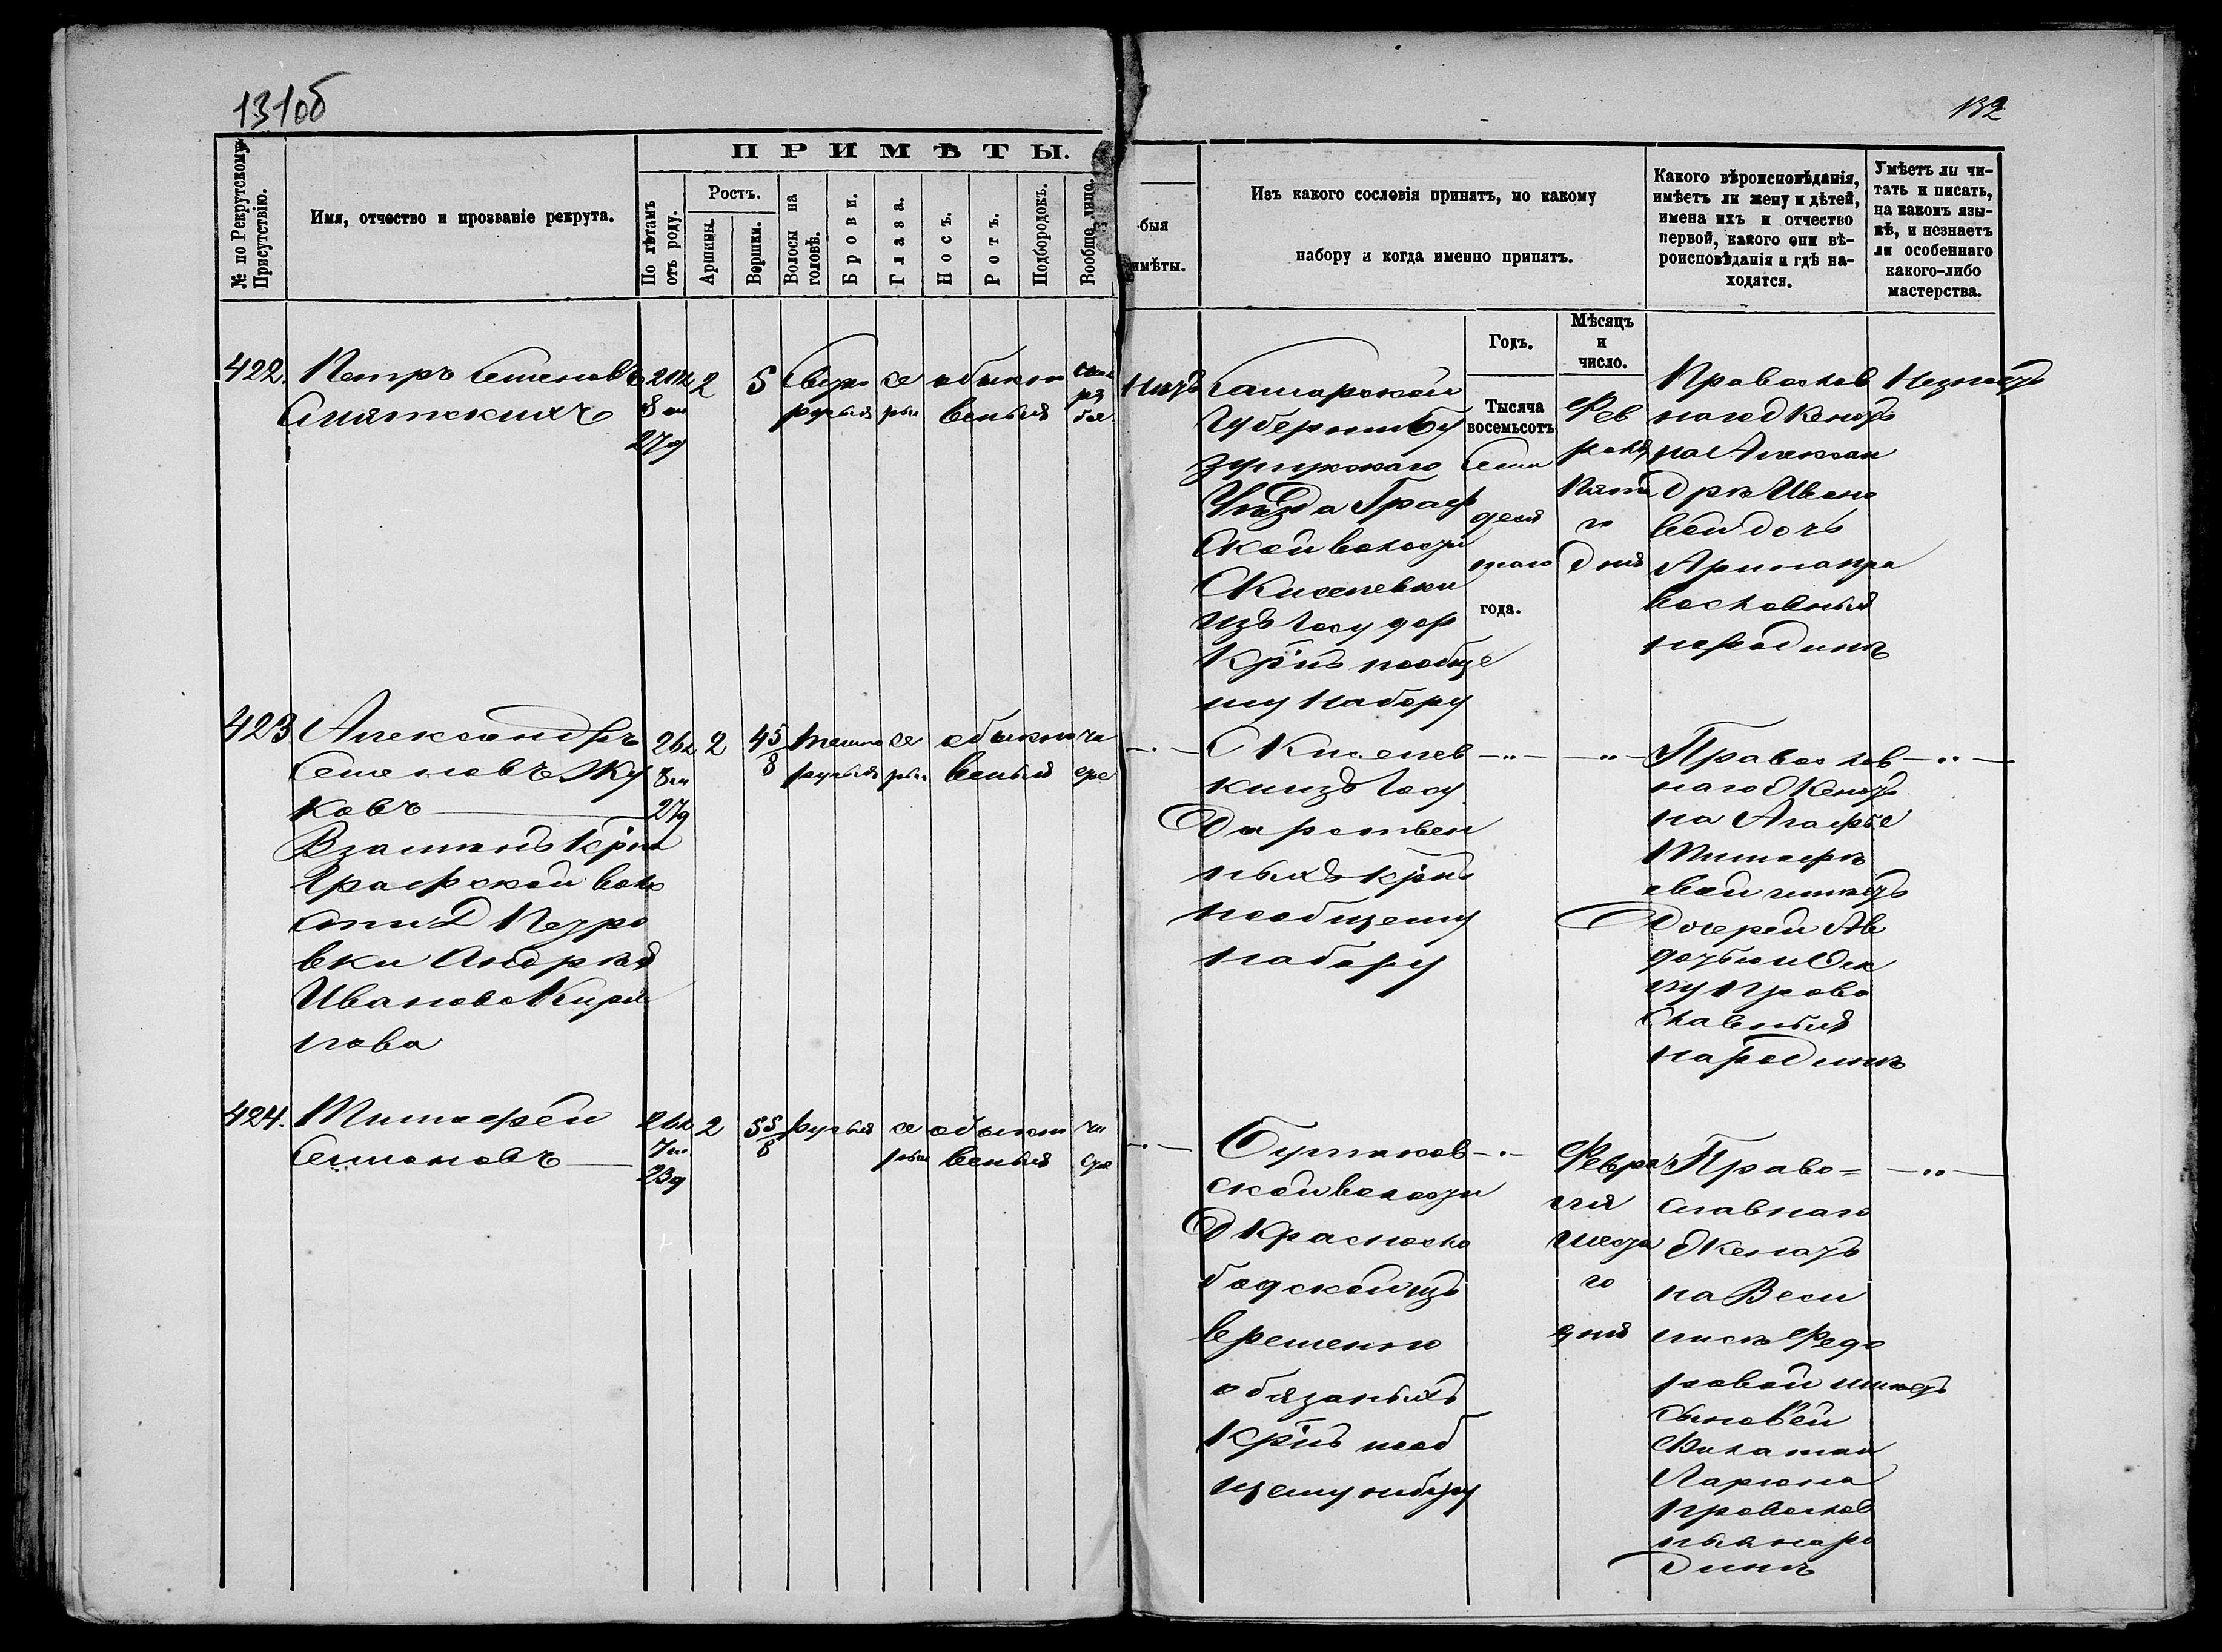 131об
132
№ по Рекрутскому Присутствію.
Имя, отчество и прозваніе рекрута.
ПРИМѢТЫ.
По лѣтамъ отъ роду.
Ростъ.
Аршины.
Вершки.
Волосы на головѣ.
Брови.
Глаза.
Носъ.
Ротъ.
Подбородокъ.
Вообще лицо.
быя
имѣты.
Изъ какого сословія принятъ, по какому
набору и когда именно принятъ.
Какого вѣроисповѣданія,
имѣетъ ли жену и дѣтей,
имена ихъ и отчество
первой, какого они вѣ-
роисповѣданія и гдѣ на-
ходятся.
Умѣетъ ли чи-
тать и писать,
на какомъ язы-
кѣ, и незнаетъ
ли особеннаго
какого-либо
мастерства.
Годъ.
Мѣсяцъ
и
число.
Тысяча
восемьсотъ
Семи
деся
таго
года.
422.
Петръ Семеновъ
21л
8 м
27д
2
5
свѣтло
русыя
се
рые
обыкно
веныя
ря
бое
Самарской
Губерніи Бу
зулукскаго
Уѣзда Граф
ской волости
С Киселевки
изъ Госу дар
Кр'нъ пообще
му набору
Фев
раля
Пята
го
Дня
Православ
наго Женатъ
на Алексан
дрѣ Ивано
вой дочь
Арина пра
вославныя
народинѣ
Незнаетъ
423
Александръ
Семеновъ Жу
ковъ
Взаменъ Кр'на
Графской воло
сти Д Петро
вки Андрѣя
Иванова Кири
лова
26л
8м
27д
2
4 5/8
темно
русыя
се
рые
обыкно
веныя
чи
стое
С Киселев
ки изъ Госу
Дарствен
ныхъ кр'нъ
пообщему
набору
Православ
наго Женатъ
на Агафье
Тимофѣ
евой имѣетъ
Дочерей Ав
дотью и
Право
славныя
народинѣ
424.
Тимофей
Семеновъ
26л
7м
23д
2
5 5/8
русыя
се
рые
обыкно
веныя
чи
стое
ской волости
Д Красносло
бодской изъ
временно
обязаныхъ
Кр'нъ пооб
щему набору
Февра
ля
шеста
го
дня
Право=
славнаго
Женатъ
на Васи
лисѣ Федо
ровой имѣетъ
Сыновей
Лариона
православ
ныя наро
динѣ